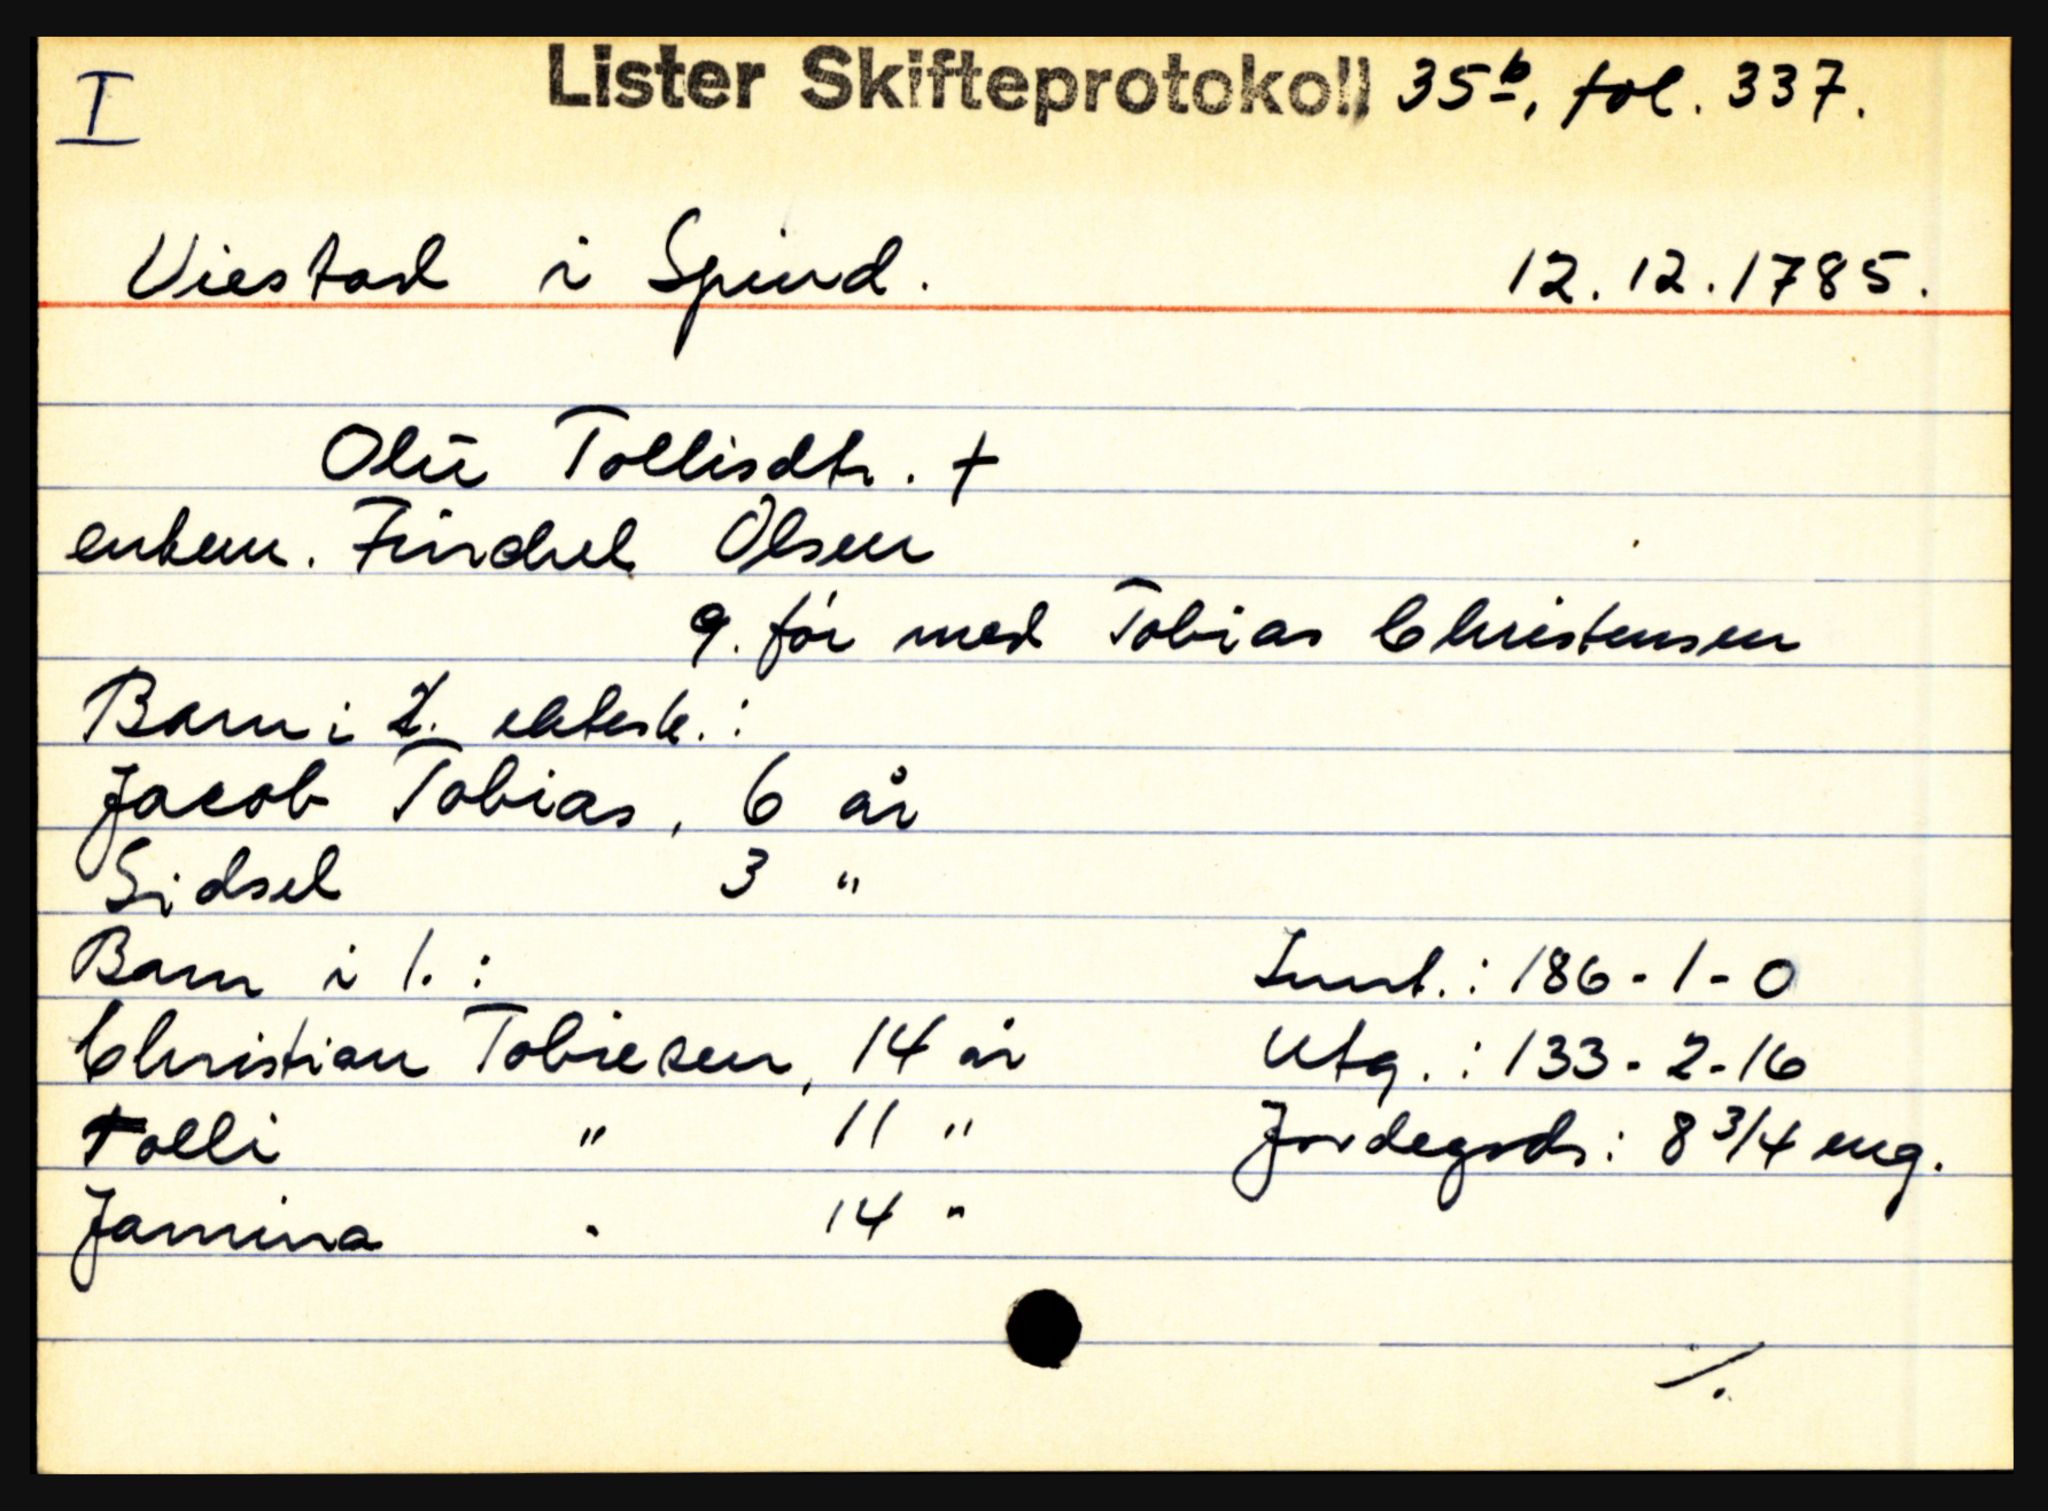 I
Lister Skifteprotokoll 35b, fol. 337.
Viestad i Spind. 12.12.1785.
Olū Tollisdtr. +
enkem. Findul Olsen
g. før med Tobias Christensen
Barn i 2. ektesk.:
Jacob Tobias, 6 år
Sidsel 3 "
Barn i 1.: Innt.: 186-1-0
Christian Tobiesen, 14 år Utg.: 133-2-16
Tolli " 11 " Jordegods: 8 3/4 eng.
Jamina " 14 "
./.